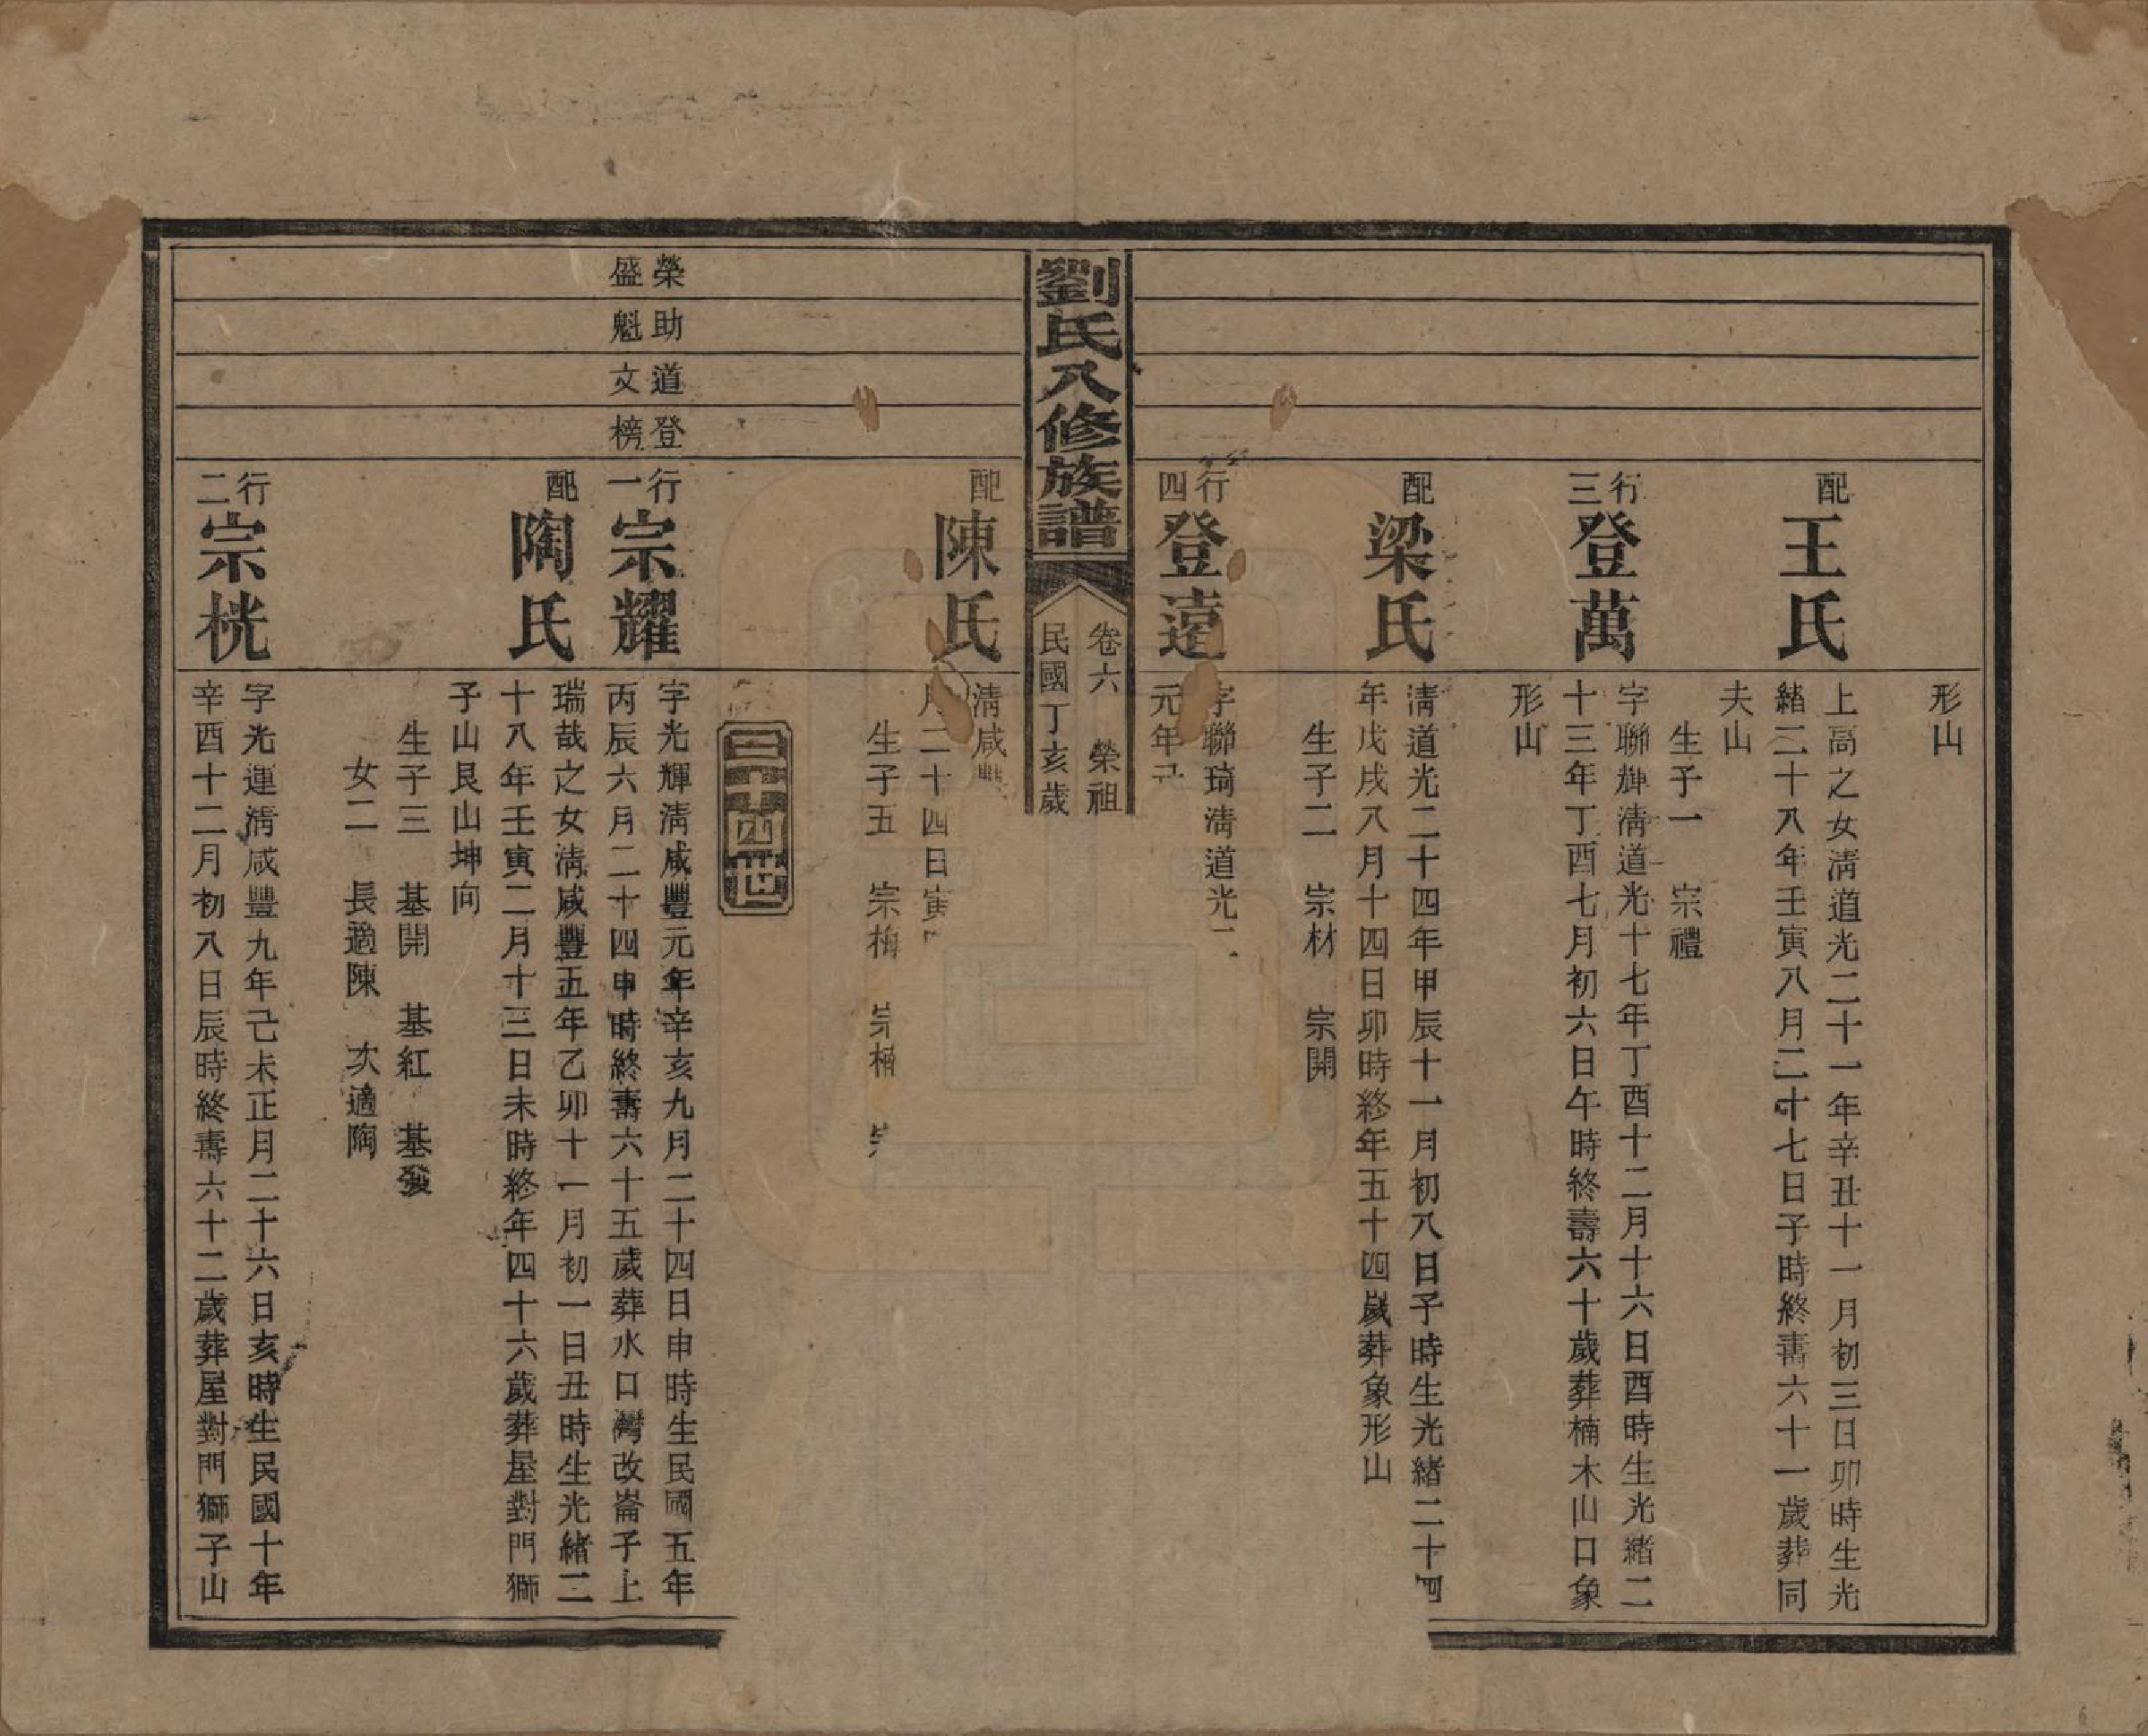 形山
配
王氏
上高之女淸道光二十一年辛丑十一月初三日卯時生光
緒二十八年壬寅八月二十七日子時終壽六十一歲葬同
夫山
生子一　宗禮
行三
登萬
字聯輝淸道光十七年丁酉十二月十六日酉時生光緒二
十三年丁酉七月初六日午時終壽六十歲葬楠木山口象
形山
配
梁氏
淸道光二十四年甲辰十一月初八日子時生光緒二十四
年戊戌八月十四日卯時終年五十四歲葬象形山
生子二　宗材　宗開
行四
登遠
字聯琦淸道光
元年
劉氏八修族譜
卷六　榮祖
民國丁亥歲
配
陳氏
淸咸
月二十四日寅
生子五　宗梅　宗楠
三十四世
榮助道登
盛魁文榜
行一
宗耀
字光輝淸咸豐元年辛亥九月二十四日申時生民國五年
丙辰六月二十四申時終壽六十五歲葬水口灣改崙子上
配
陶氏
瑞哉之女淸咸豐五年乙卯十一月初一日丑時生光緒二
十八年壬寅二月十三日未時終年四十六歲葬屋對門獅
子山艮山坤向
生子三　基開　基紅　基發
女二　長適陳　次適陶
行二
宗桄
字光運淸咸豐九年己未正月二十六日亥時生民國十年
辛酉十二月初八日辰時終壽六十二歲葬屋對門獅子山